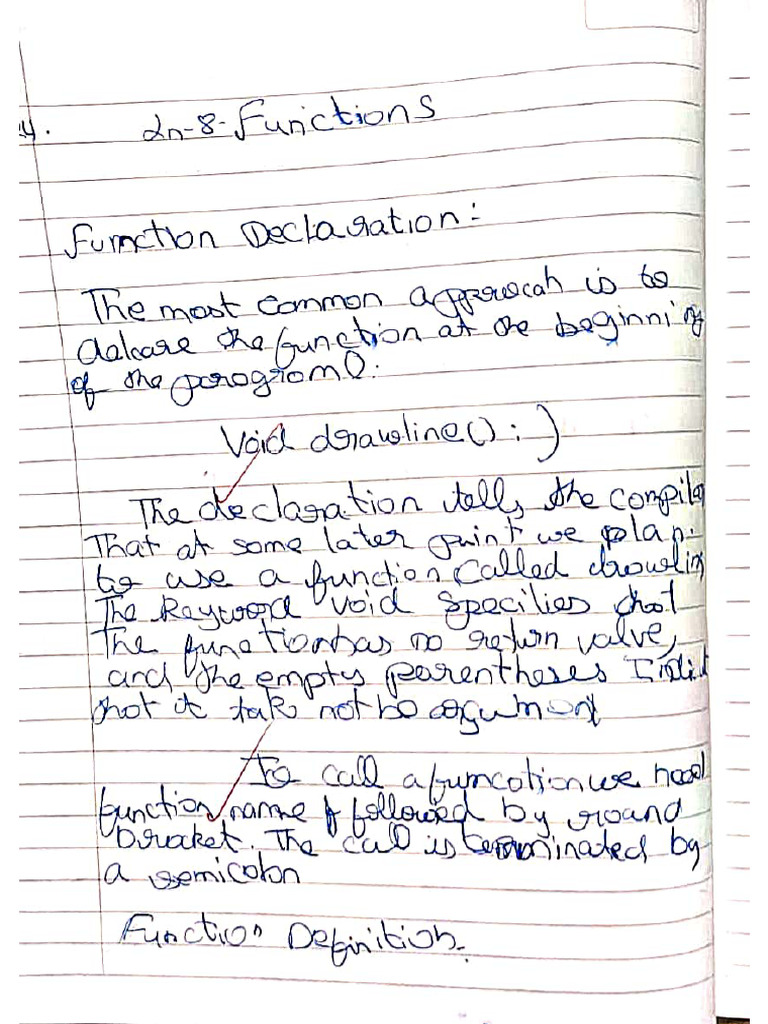 Ln-8- Functions
Function Declaration:
The most common approcah is to
dalcare the function at the beginning
of the program
Void drawline() ;
The declaration tells the compiler
That at some later point we plan
to use a function called drawlin
The Keyword void specilies that
The function has no return valve,
and the empty parentheses
that it take not be
To call a funcotion we need
function name followed by round
bracket. The call is terminated by
a semicolon
Function Definition.